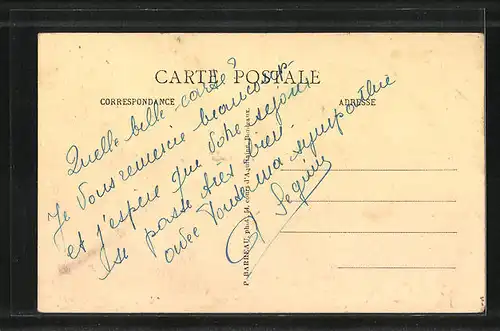 CARTE POSTALE
CORRESPONDANCE
ADRESSE
Quelle belle carte?
Je vous remercie beaucoup
et j'espère que votre séjour
se passe très bien
avec toute ma sympathie
Seguin
P. BARDEAU, phot., cours d'Aquitaine, Bordeaux.